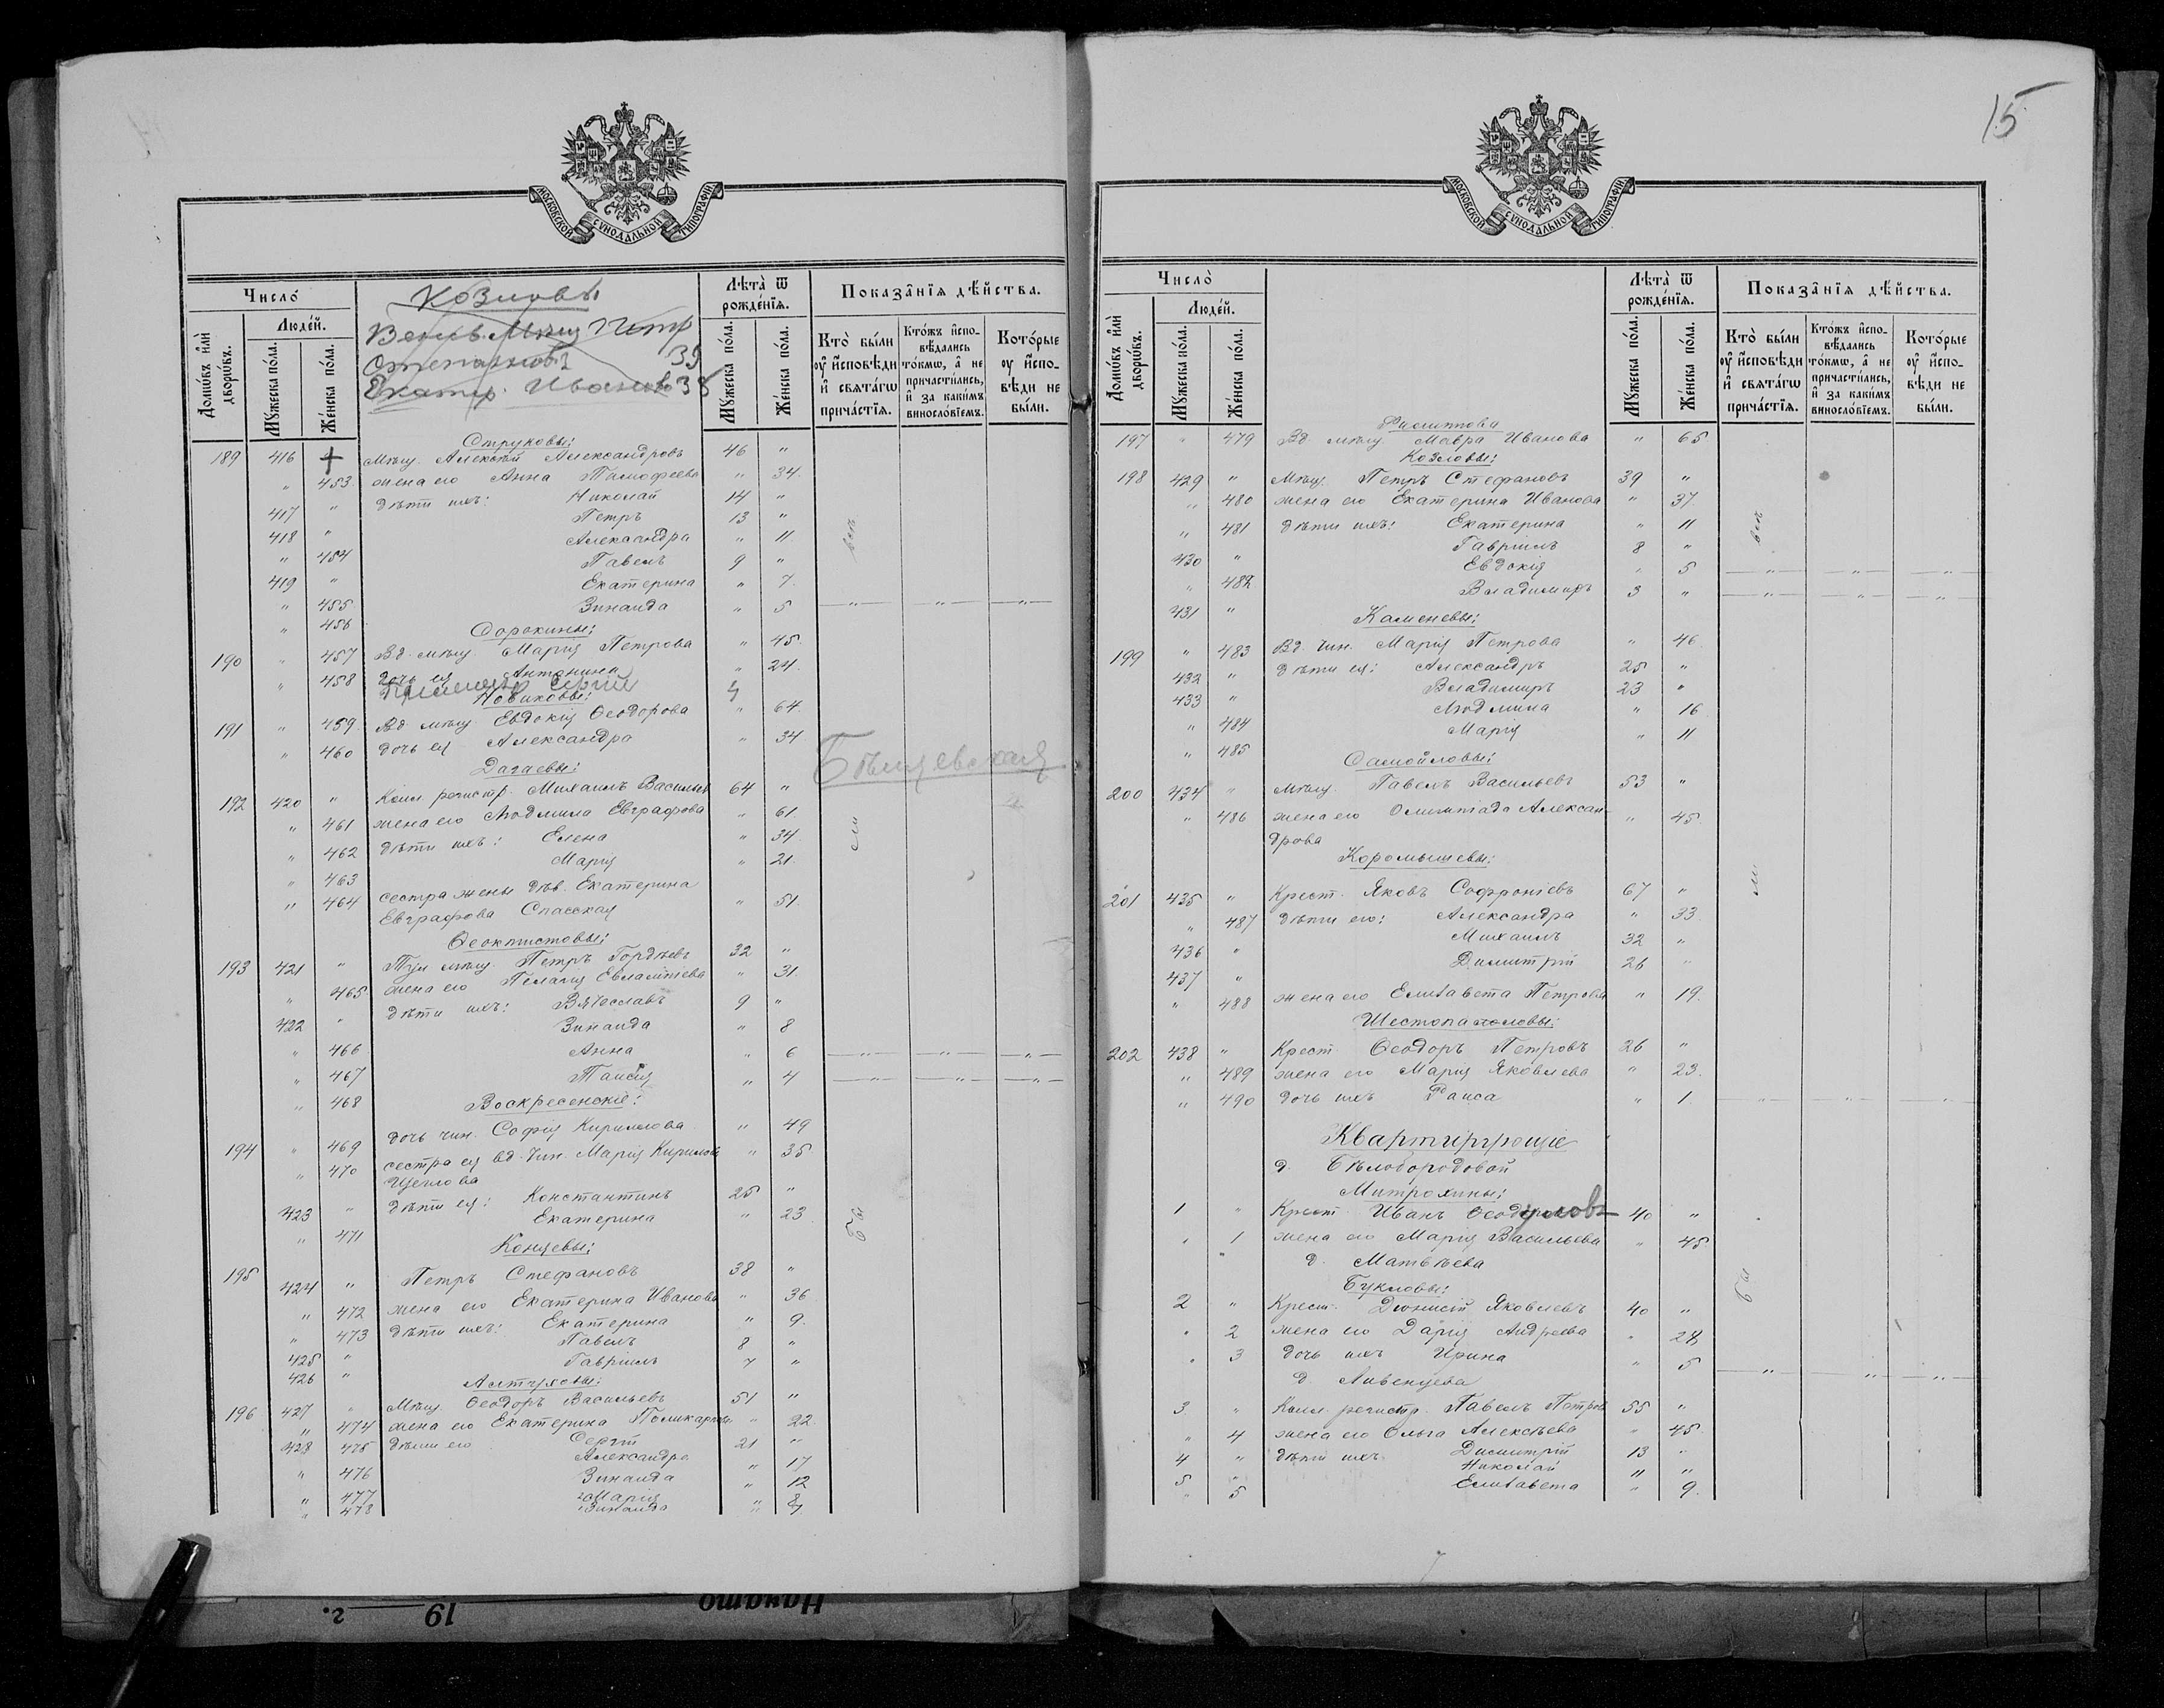 МОСКОВСКОЙ СУНОДАЛЬНОЙ ТИПОГРАФІИ
Число̀
Домѡ́въ и҆лѝ дворѡ́въ.
Люде́й.
Мꙋ́жеска по́ла.
Же́нска по́ла.
Козловы
Мѣщ Петр
Степановъ 39
Екатер. Иванова 38
Лѣ́та ѿ рожде́нїѧ.
Мꙋ́жеска по́ла.
Же́нска по́ла.
Показа̂нїѧ дѣ́йства.
Кто̀ бы́ли оу҆ и҆сповѣ́ди и҆ свѧта́гѡ прича́стїѧ.
Кто́жъ и҆спо-вѣ́дались то́кмѡ, а҆ не причасти́лись, и҆ за каки́мъ винослоՙвїемъ.
Кото́рые оу҆ и҆спо-вѣ́ди не бы́ли.
Струковы:
189 416 Мѣщ. Алексѣй Александровъ 46 "
" 453 жена его Анна Тимофеева " 34.
417 " дѣти ихъ: Николай 14 "
418 " Петръ 13 "
" 454 Александра " 11
419 " Павелъ 9 "
" 455 Екатерина " 7.
" 456 Зинаида " 5
Сорокины:
190 " 457 Вд. мѣщ. Марія Петрова " 45.
" 458 дочь ея Антонина " 24.
Сергій 4
Новиковы:
191 " 459 Вд. мѣщ. Евдокія Ѳеодорова " 64.
" 460 дочь ея Александра " 34
Дагаевы:
192 420 " Колл. регистр. Михаилъ Васильев 64 "
" 461 жена его Людмила Евграфова " 61.
" 462 дѣти ихъ: Елена " 34.
" 463 Марія " 21.
" 464 сестра жены дѣв. Екатерина
Евграфова Спасская " 51.
Бѣщевская
Ѳеоктистовы:
193 421 " Тул мѣщ. Петръ Гордѣевъ 32 "
" 465 жена его Пелагія Евлампіева " 31
422 " дѣти ихъ: Вячеславъ 9 "
" 466 Зинаида " 8
" 467 Анна " 6
" 468 Таисія " 4
Воскресенскіе:
194 " 469 дочь чин. Софія Кириллова " 49
" 470 сестра ея вд. чин. Марія Кирилов " 35
Щеглова
423 " дѣти ея: Константинъ 25 "
" 471 Екатерина " 23
Концевы:
195 424 " Петръ Стефановъ 38 "
" 472 жена его Екатерина Иванова " 36
" 473 дѣти ихъ: Екатерина " 9.
425 " Павелъ 8 "
426 " Гавріилъ 7 "
Алтуховы:
196 427 " Мѣщ. Ѳеодоръ Васильевъ 51 "
" 474 жена его Екатерина Поликарпов " 22
428 475 дѣти его Сергій 21 "
Александра " 17
" 476 Зинаида " 12
" 477 Марія " 8
" 478 Зинаида " 4
все
ли
бы
15
МОСКОВСКОЙ СУНОДАЛЬНОЙ ТИПОГРАФІИ
Число̀
Домѡ́въ и҆лѝ дворѡ́въ.
Люде́й.
Мꙋ́жеска по́ла.
Же́нска по́ла.
Лѣ́та ѿ рожде́нїѧ.
Мꙋ́жеска по́ла.
Же́нска по́ла.
Показа̂нїѧ дѣ́йства.
Кто̀ бы́ли оу҆ и҆сповѣ́ди и҆ свѧта́гѡ прича́стїѧ.
Кто́жъ и҆спо-вѣ́дались то́кмѡ, а҆ не причасти́лись, и҆ за каки́мъ винослоՙвїемъ.
Кото́рые оу҆ и҆спо-вѣ́ди не бы́ли.
Филиппова
197 " 479 Вд. мѣщ. Мавра Иванова " 65
Козловы:
198 429 " Мѣщ. Петръ Стефановъ 39 "
" 480 жена его Екатерина Иванова " 37.
" 481 дѣти ихъ: Екатерина " 11
430 " Гавріилъ 8 "
" 482 Евдокія " 5
431 " Владиміръ 3 "
Каменевы:
199 " 483 Вд. чин. Марія Петрова " 46
432 " дѣти ея: Александръ 25 "
433 " Владиміръ 23 "
" 484 Людмила " 16
" 485 Марія " 11
Самойловы:
200 434 " мѣщ. Павелъ Васильевъ 53 "
" 486 жена его Олимпіада Алексан- " 45
дрова
Коромышевы:
201 435 " Крест. Яковъ Софроніевъ 67 "
" 487 дѣти его: Александра " 33
436 " Михаилъ 32 "
437 " Димитрій 26 "
" 488 жена его Елизавета Петрова " 19.
Шестопаловы:
202 438 " Крест. Ѳеодоръ Петровъ 26 "
" 489 жена его Марія Яковлева " 23.
" 490 дочь ихъ Раиса " 1
Квартирующіе
д. Бѣлобородовой
Митрохины:
1 " Крест. Иванъ 40 "
" 1 жена его Марія Васильева " 45
д. Матвѣева
Букловы:
2 " Крест. Діонисій Яковлевъ 40 "
" 2 жена его Дарія Андреева " 28
" 3 дочь ихъ Ирина " 5
д. Ливенцева
3 " Колл. регистр. Павелъ Петров 55 "
" 4 жена его Ольга Алексѣева " 45.
4 " дѣти ихъ Димитрій 13 "
5 " Николай 11 "
" 5 Елизавета " 9.
все
ли
бы
Начато 19 г.